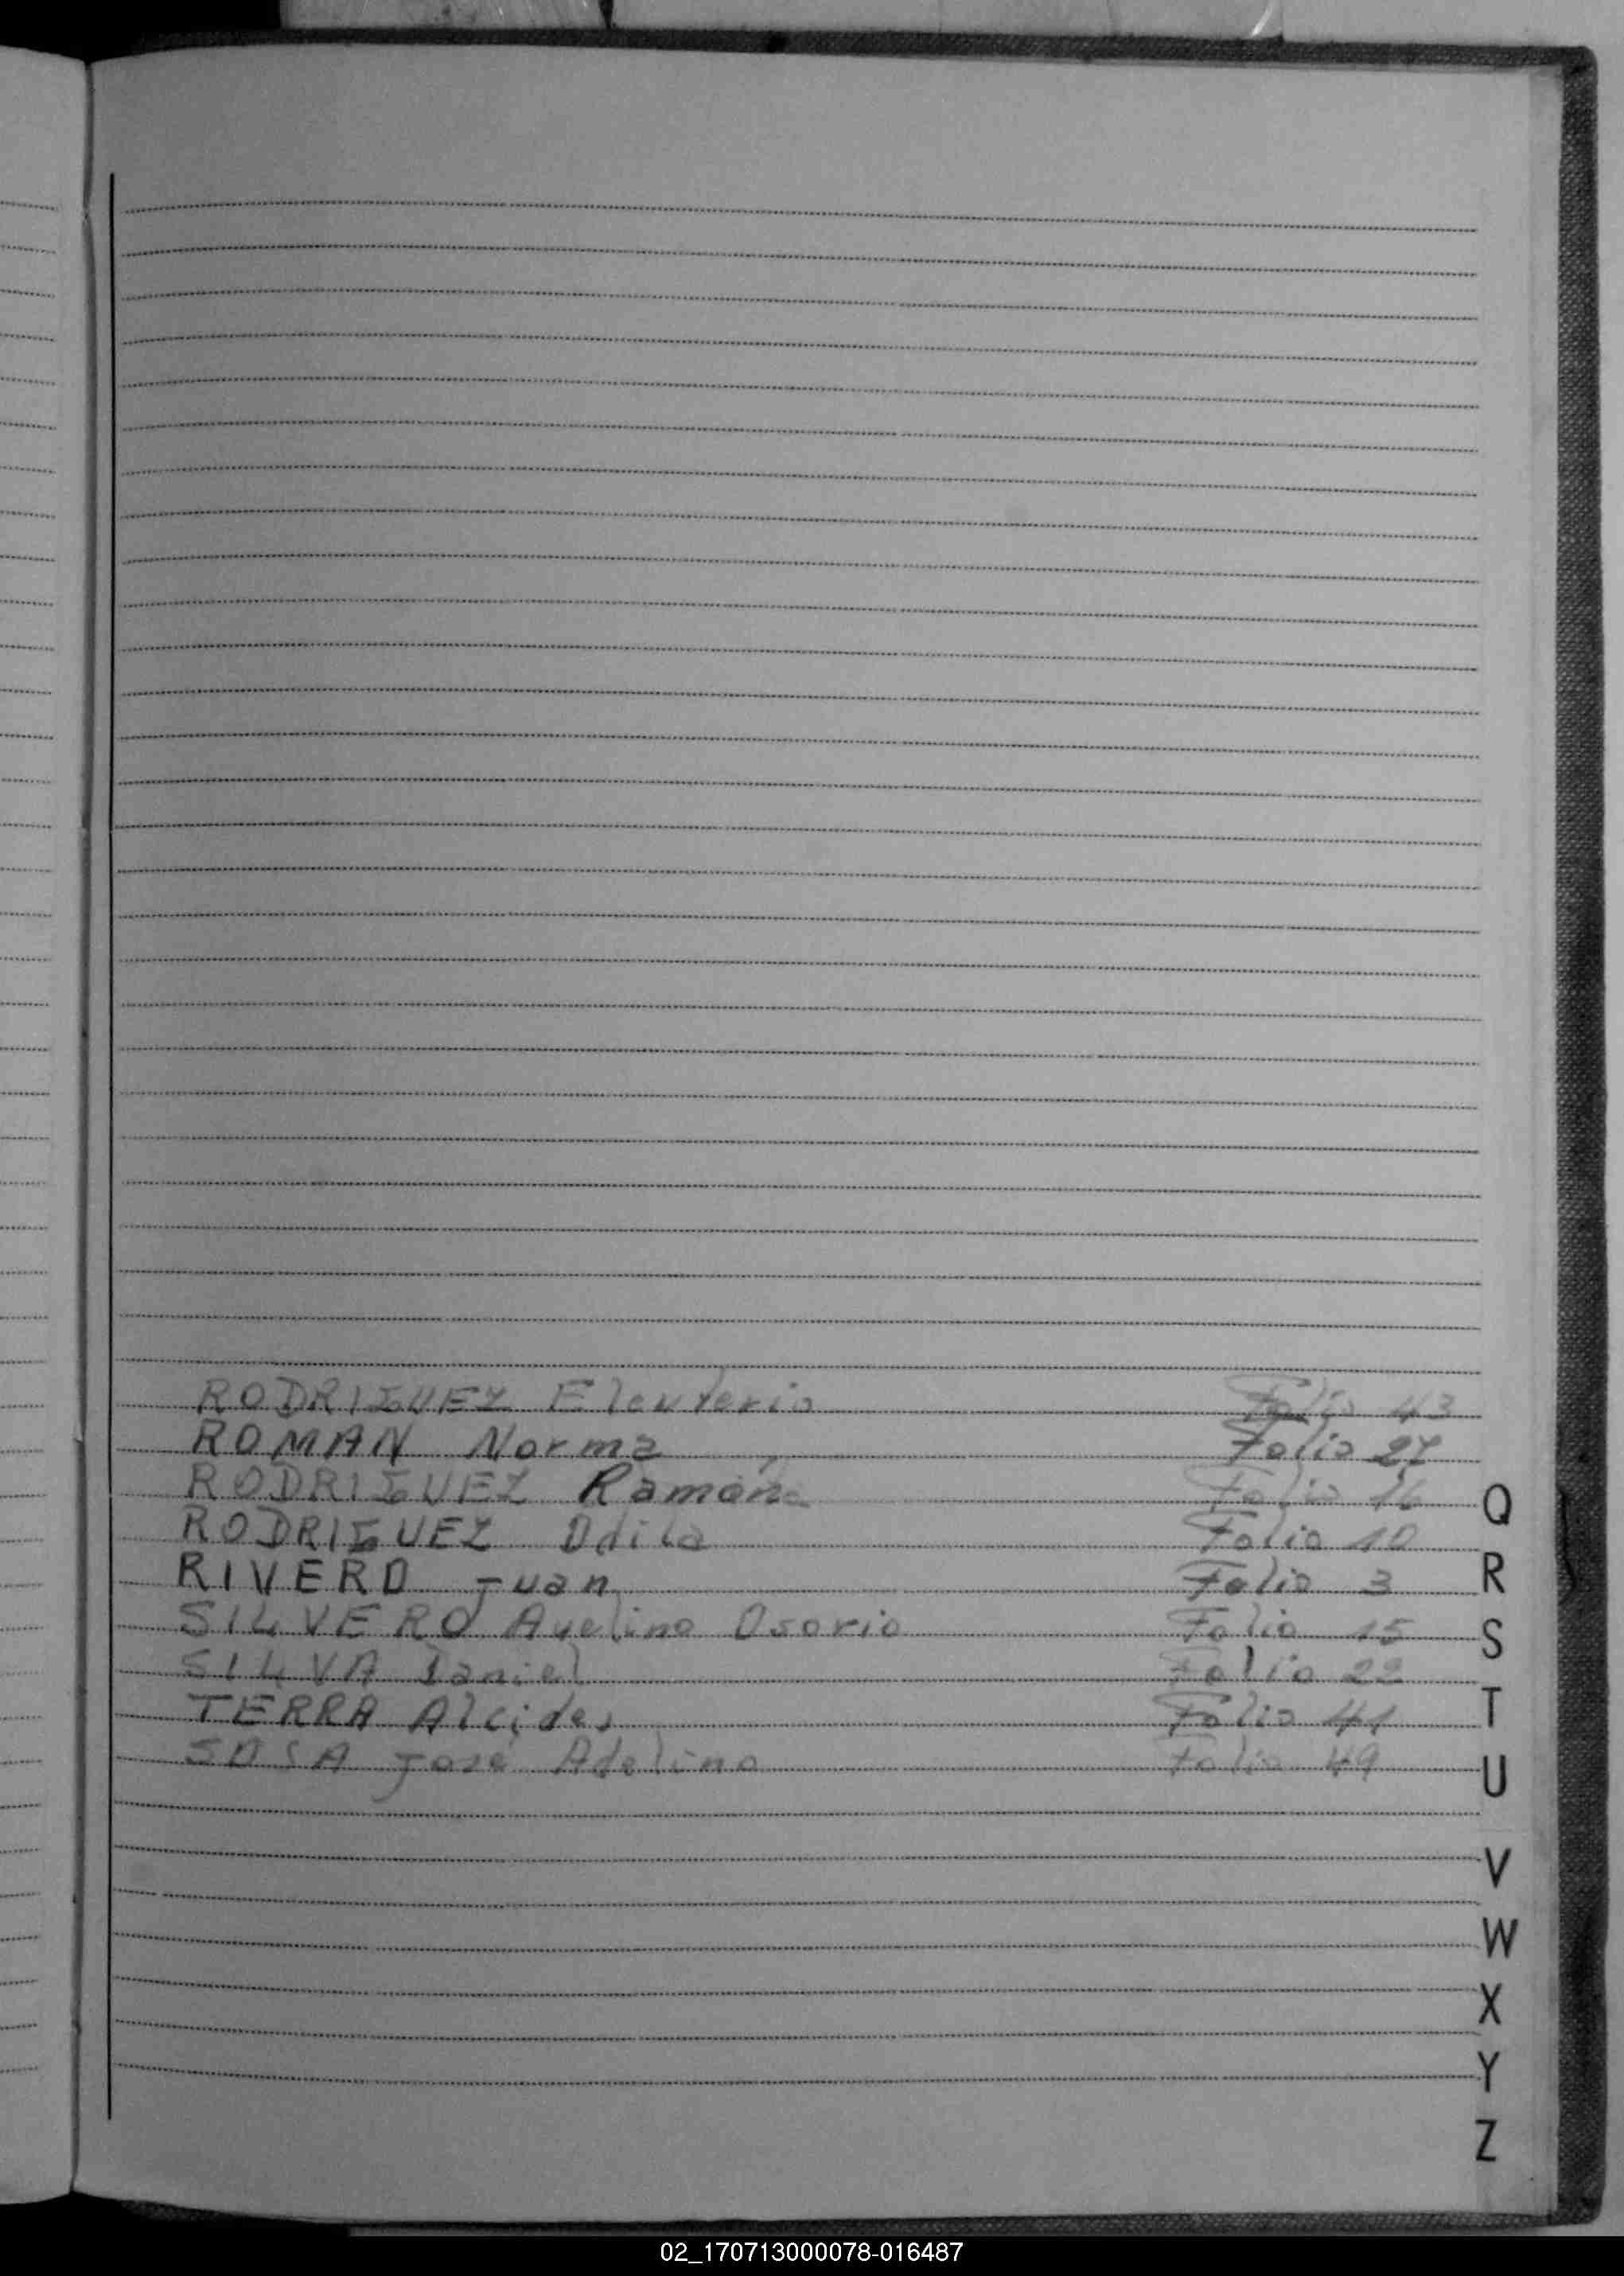 RODRIGUEZ Eleuterio Folio 43
ROMAN Norma Folio 27
RODRIGUEZ Ramón Folio 16
RODRIGUEZ Odila Folio 10
RIVERO Juan Folio 3
SILVERO Avelino Osorio Folio 15
SILVA Daniel Folio 22
TERRA Alcides Folio 41
SOSA José Adelino Folio 49
Q
R
S
T
U
V
W
X
Y
Z
02_170713000078-016487